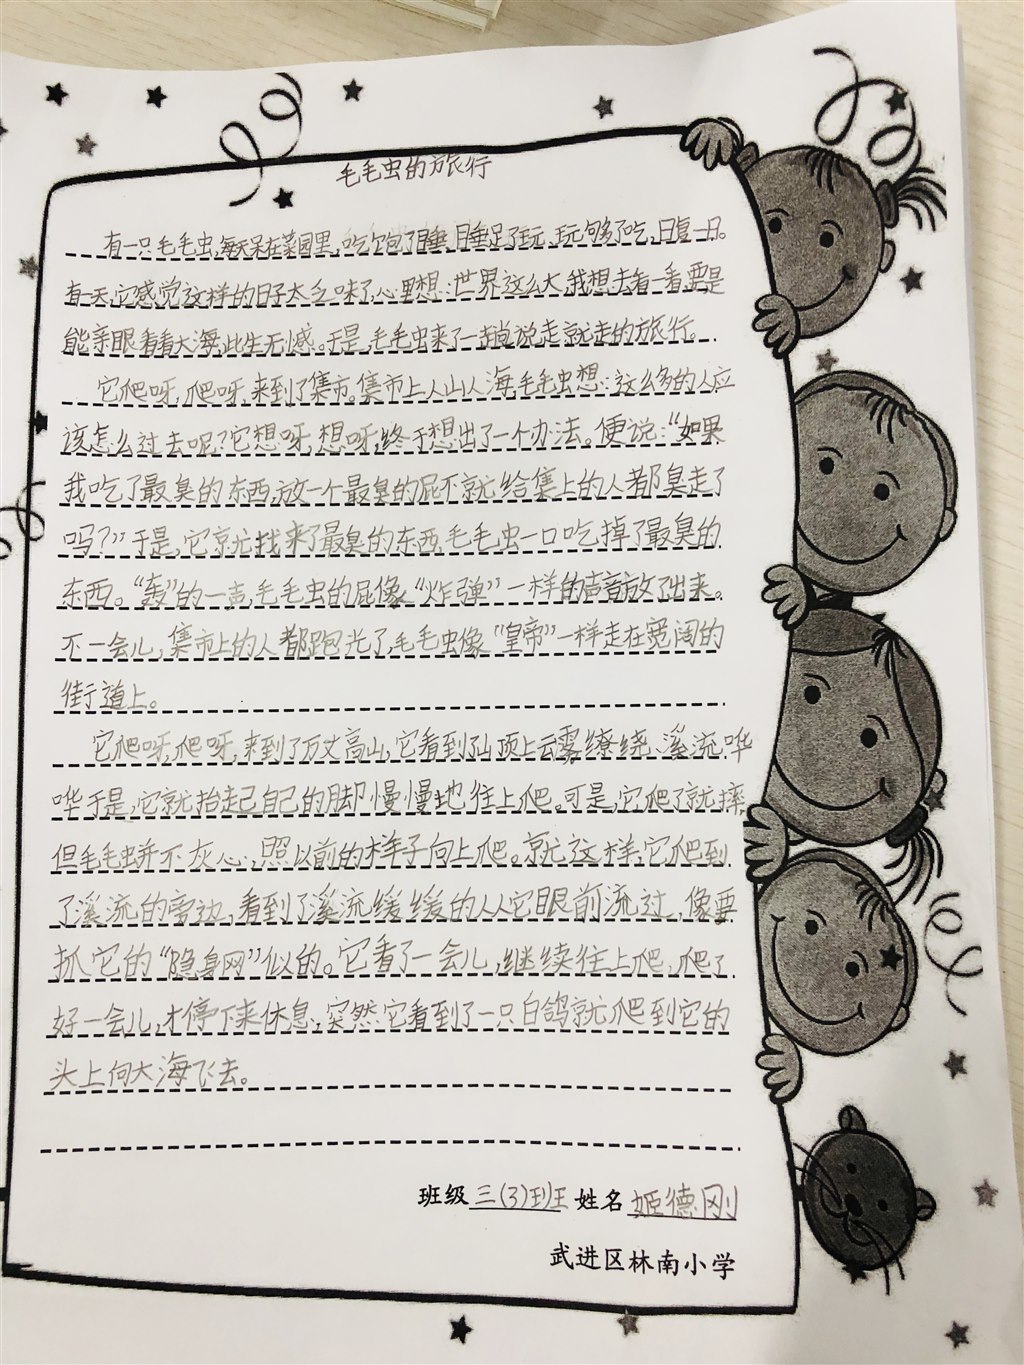 毛毛虫的旅行
有一只毛毛虫,每天呆在菜园里,吃饱了睡,睡足了玩,玩够了吃,日复一日。
有一天,它感觉这样的日子太乏味了,心里想:世界这么大,我想去看一看,要是
能亲眼看看大海,此生无憾。于是,毛毛虫来了一趟说走就走的旅行。
它爬呀,爬呀,来到了集市。集市上人山人海,毛毛虫想:这么多的人应
该怎么过去呢?它想呀,想呀,终于想出了一个办法。便说:“如果
我吃了最臭的东西,放一个最臭的屁不就给集上的人都臭走了
吗?”于是,它就找来了最臭的东西,毛毛虫一口吃掉了最臭的
东西。“轰”的一声,毛毛虫的屁像“炸弹”一样的声音放了出来。
不一会儿,集市上的人都跑光了,毛毛虫像“皇帝”一样走在宽阔的
街道上。
它爬呀,爬呀,来到了万丈高山,它看到了山顶上云雾缭绕、溪流哗
哗于是,它就抬起己自己的脚慢慢地往上爬。可是,它爬了就摔,
但毛毛虫并不灰心,照以前的样子向上爬。就这样,它爬到
了溪流的旁边,看到了溪流缓缓的从它眼前流过,像要
抓它的“隐身网”似的。它看了一会儿,继续往上爬,爬了
好一会儿,才停下来休息,突然,它看到了一只白鸽就爬到它的
头上向大海飞去。
班级三(3)班 姓名姬德刚
武进区林南小学